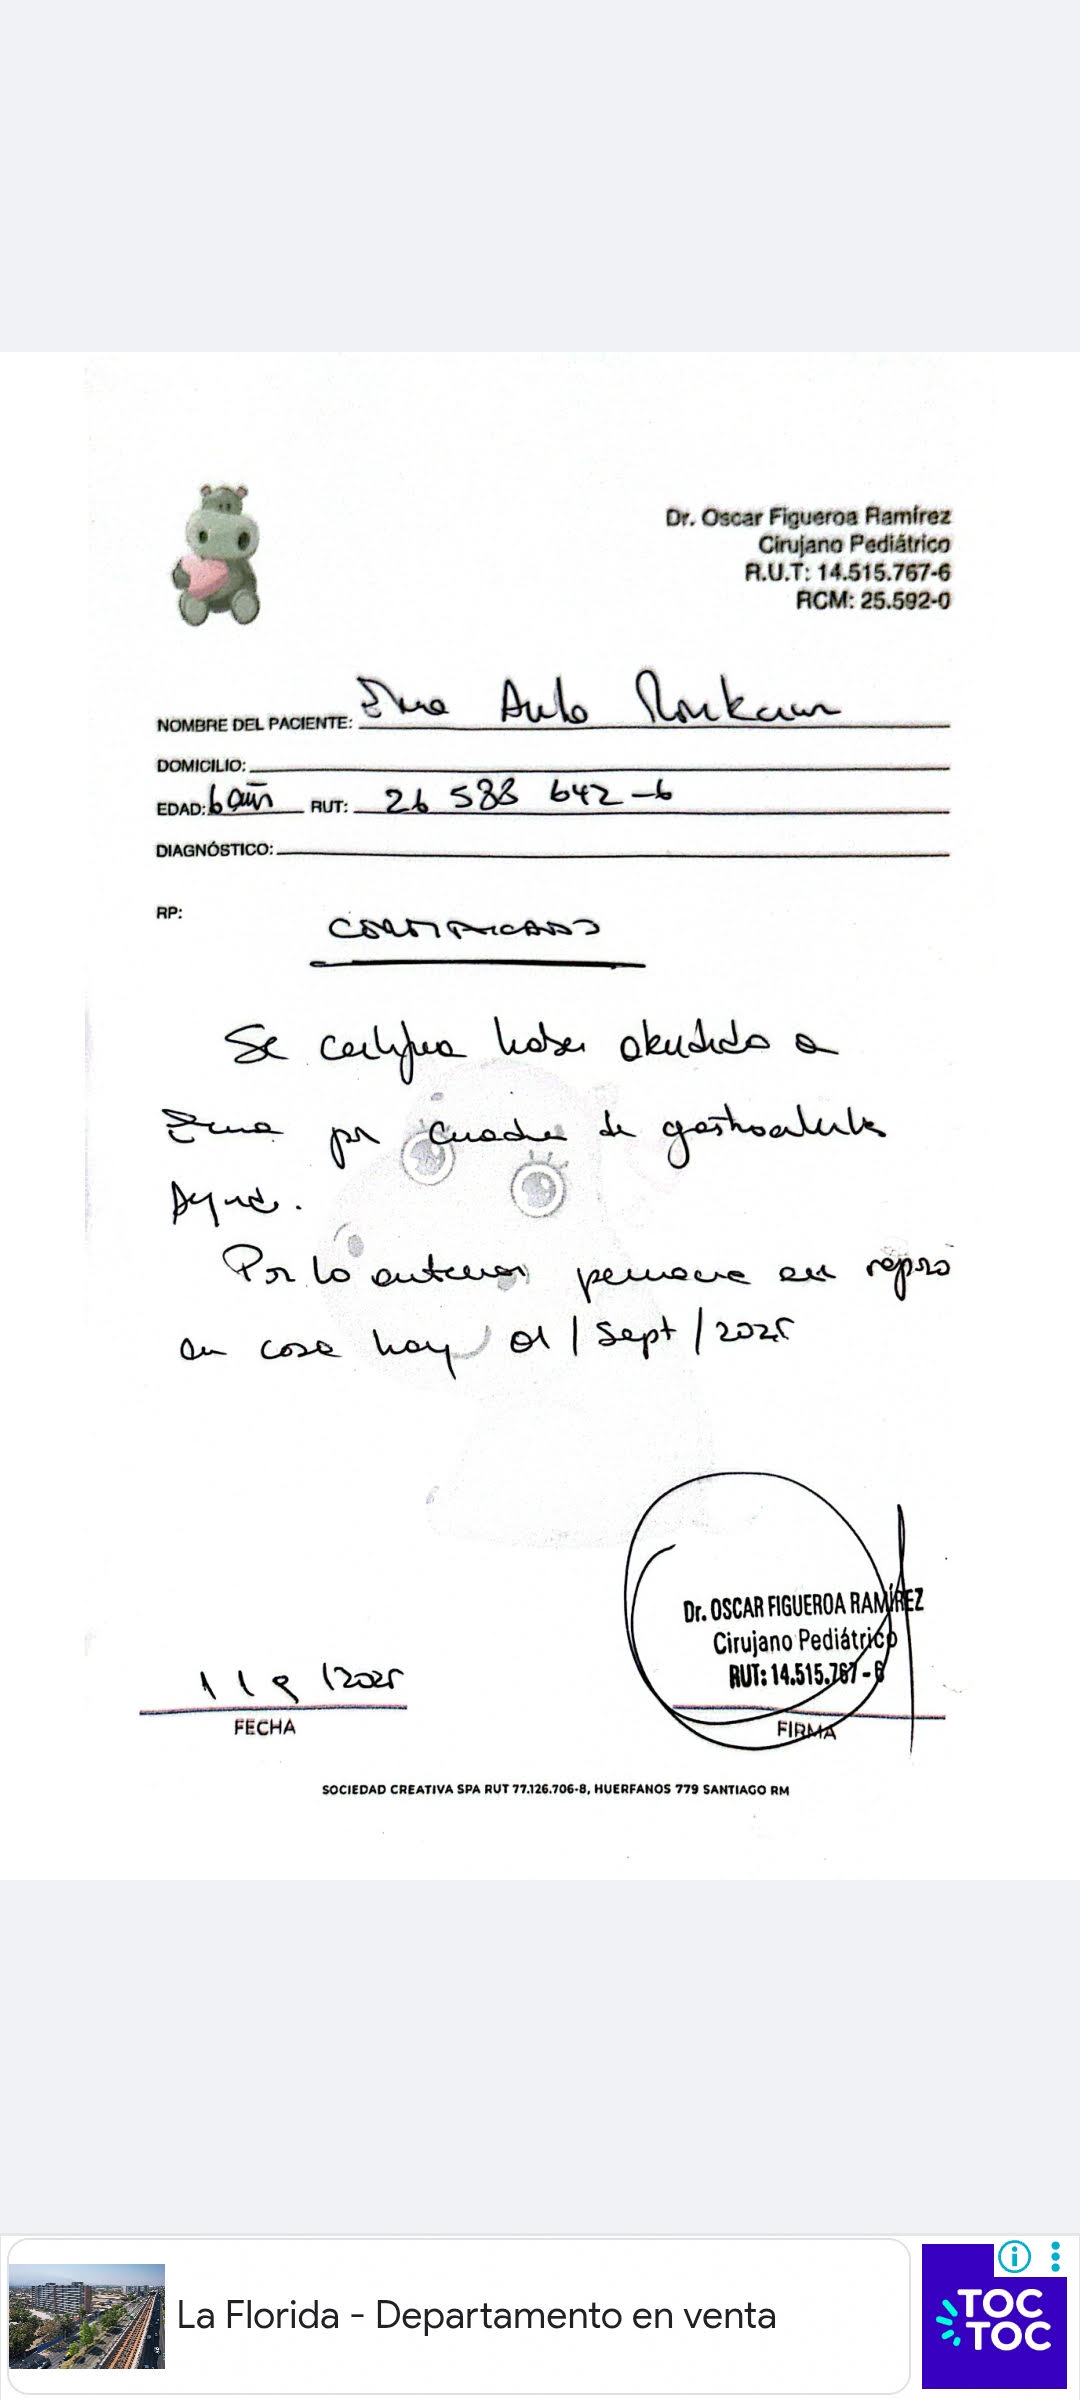 Dr. Oscar Figueroa Ramírez
Cirujano Pediátrico
R.U.T: 14.515.767-6
RCM: 25.592-0
NOMBRE DEL PACIENTE:
DOMICILIO:
EDAD: 6 años RUT: 26 588 642-6
DIAGNÓSTICO:
RP:
CERTIFICADO
Se certifica haber atendido a
Ema por cuadro de gastroenteritis
Aguda.
Por lo anterior permanece en reposo
en casa hoy 01/Sept/2025
Dr. OSCAR FIGUEROA RAMÍREZ
Cirujano Pediátrico
RUT: 14.515.767-6
1/9/2025
FECHA
FIRMA
SOCIEDAD CREATIVA SPA RUT 77.126.706-8, HUERFANOS 779 SANTIAGO RM
La Florida - Departamento en venta
TOC
TOC